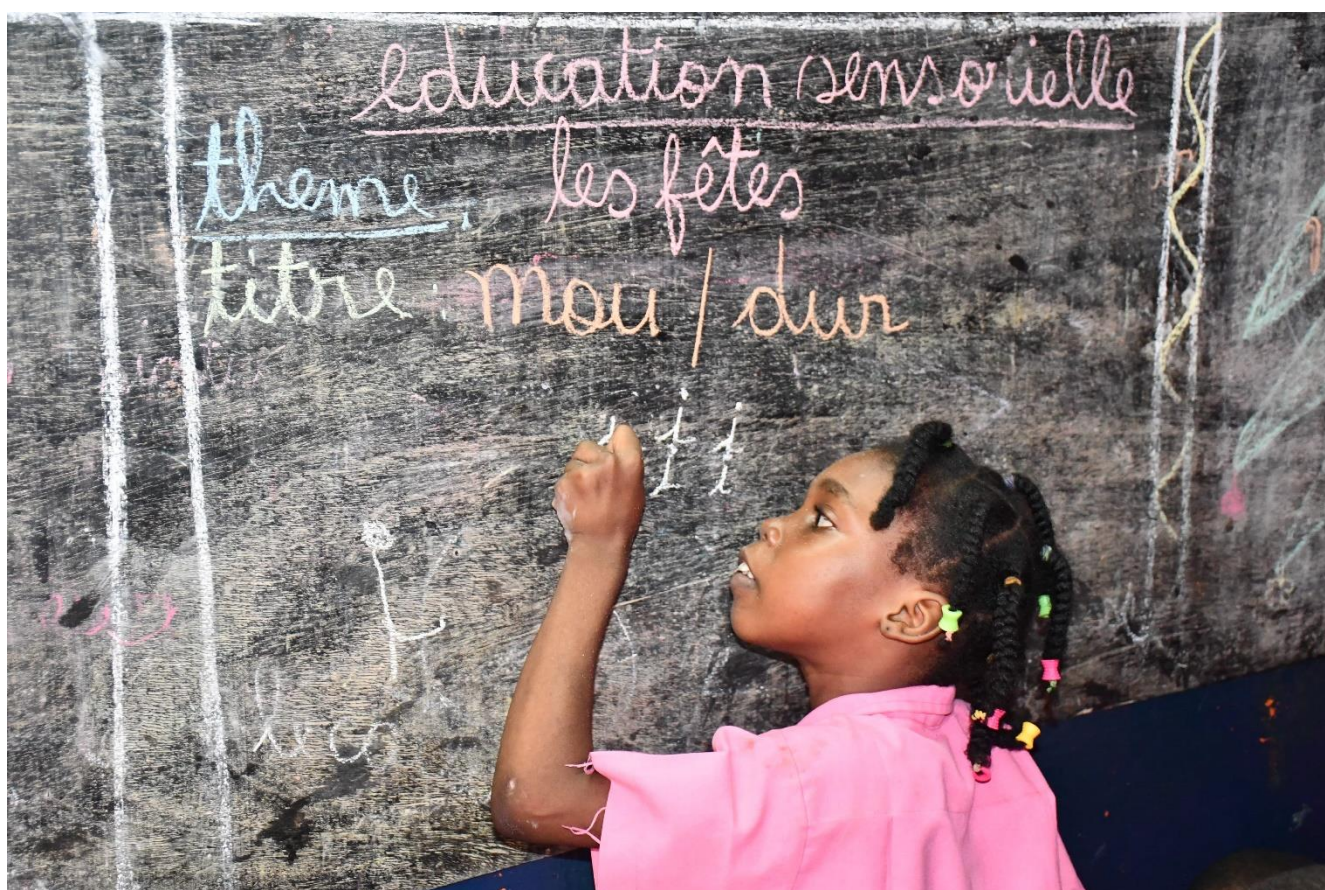 education sensorielle
theme: les fêtes
titre: mou/dur
i i